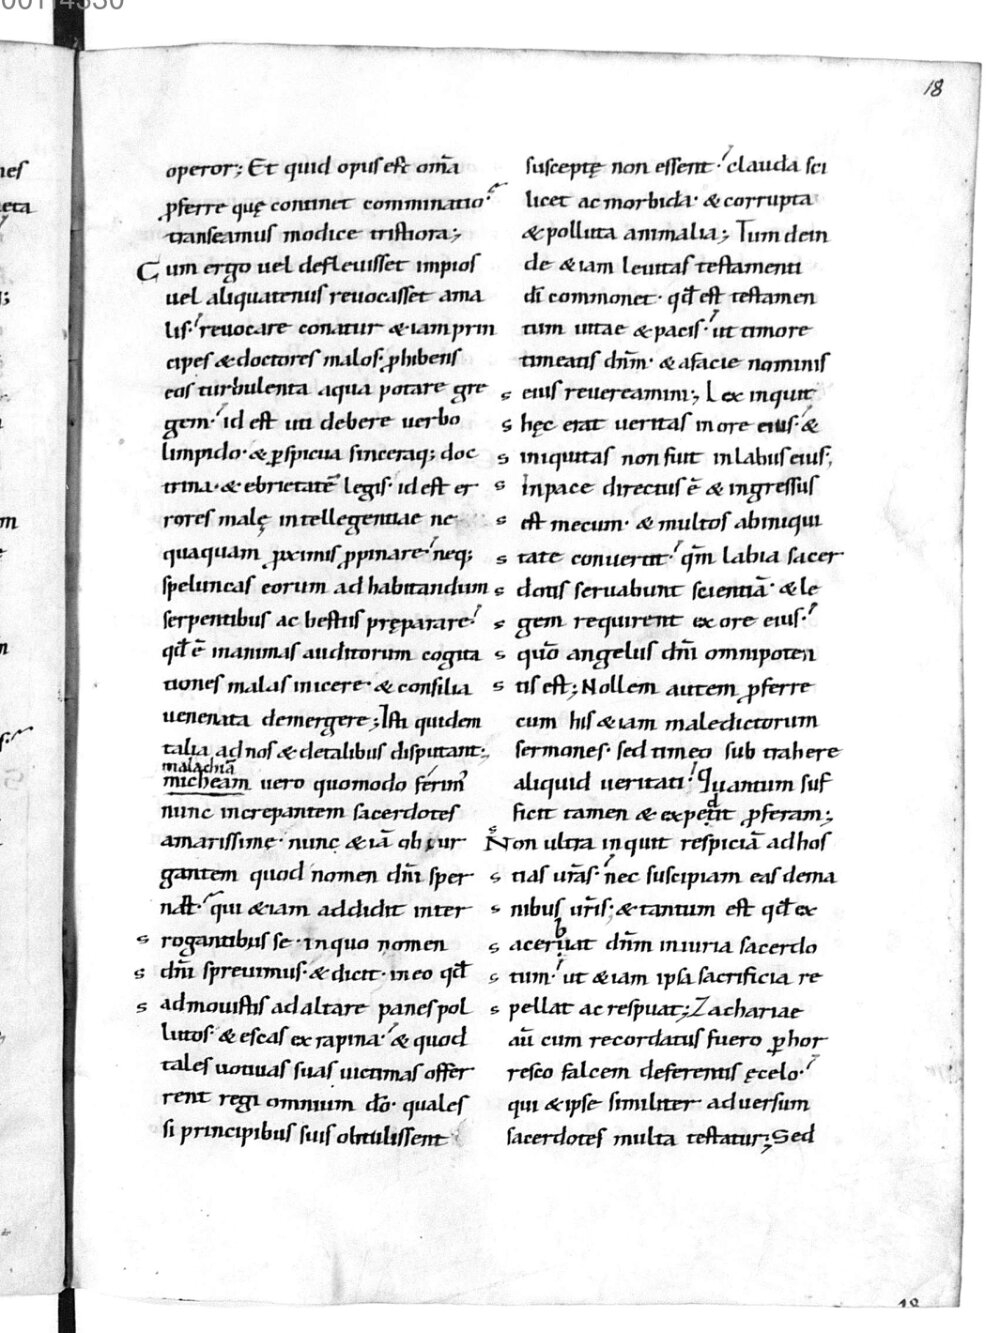 18
operor; Et quid opus est om̄a
ꝓferre quę continet comminatio
transeamus modice tristiora;
Cum ergo uel defleuisset impios
uel aliquatenus reuocasset ama
lis· reuocare conatur & iam prin
cipes & doctores malos· ꝓhibens
eos turbulenta aqua potare gre
gem· id est uti debere uerbo
limpido· & ꝑspicua sinceraq; doc
trina· & ebrietatē legis· id est er
rores malę intellegentiae ne
quaquam ꝓximis ꝓpinare· neq;
speluncas eorum ad habitandum
serpentibus ac bestiis pręparare·
qd̄ ē in animas auditorum cogita
tiones malas inicere· & consilia
uenenata demergere; Isti quidem
talia ad nos & de talibus disputant;
malachiā
micheam uero quomodo ferim᷒
nunc increpantem sacerdotes
amarissime· nunc & iā obiur
gantem quod nomen dn̄i sper
nat· qui & iam addidit inter
s rogantibus se· in quo nomen
s dn̄i spreuimus· & dicit· in eo qd̄
s admouistis ad altare panes pol
lutos· & escas ex rapina· & quod
tales uotiuas suas uictimas offer
rent regi omnium dō· quales
si principibus suis obtulissent
susceptę non essent· clauda sci
licet ac morbida· & corrupta
& polluta animalia; Tum dein
de & iam leuitas testamenti
dī commonet· qd̄ est testamen
tum uitae & pacis· ut timore
timeatis dn̄m· & a facie nominis
s eius reuereamini; Lex inquit
s hęc erat ueritas in ore eius· &
s iniquitas non fuit in labiis eius;
s In pace directus ē & ingressus
s est mecum· & multos ab iniqui
s tate conuertit· qm̄ labia sacer
s dotis seruabunt scientiā· & le
s gem requirent ex ore eius·
s quō angelus dn̄i omnipoten
s tis est; Nollem autem ꝓferre
cum his & iam maledictorum
sermones· sed timeo subtrahere
aliquid ueritati· Quantum suf
ficit tamen & expedit ꝓferam;
s Non ultra inquit respiciā ad hos
s tias urās· nec suscipiam eas de ma
s nibus ur̄is; & tantum est qd̄ ex
s acerbat dn̄m iniuria sacerdo
s tum· ut & iam ipsa sacrificia re
s pellat ac respuat; Zachariae
aū cum recordatus fuero ꝑhor
resco falcem deferentis ęcelo·
qui & ipse similiter aduersum
sacerdotes multa testatur; Sed